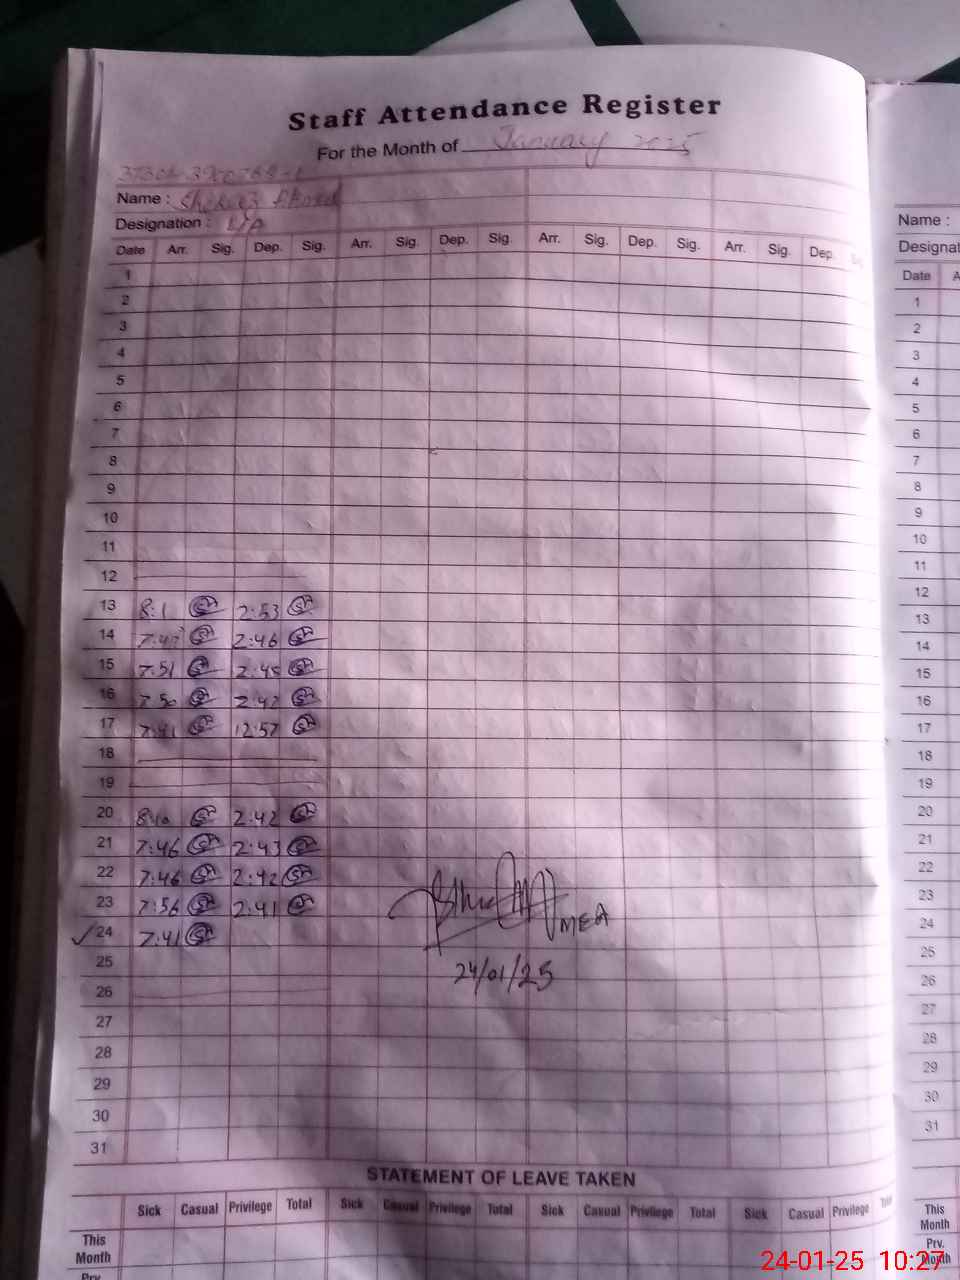 Staff Attendance Register
For the Month of January 2025
Name :
Designation :
Date Arr. Sig. Dep. Sig. Arr. Sig. Dep. Sig. Arr. Sig. Dep. Sig. Arr. Sig. Dep.
1
2
3
4
5
6
7
8
9
10
11
12
13 8:1 2:53
14 2:46
15 7:51 2:45
16 7:50
17 7:41 12:57
18
19
20 2:42
21 7:46 2:43
22 7:46 2:42
23 7:56 2:41
24 7:41
MEA
24/01/25
25
26
27
28
29
30
31
STATEMENT OF LEAVE TAKEN
Sick Casual Privilege Total Sick Casual Privilege Total Sick Casual Privilege Total Sick Casual Privilege
This
Month
Prv.
Name :
Designat
Date A
1
2
3
4
5
6
7
8
9
10
11
12
13
14
15
16
17
18
19
20
21
22
23
24
25
26
27
28
29
30
31
This
Month
Prv.
Month
24-01-25 10:27